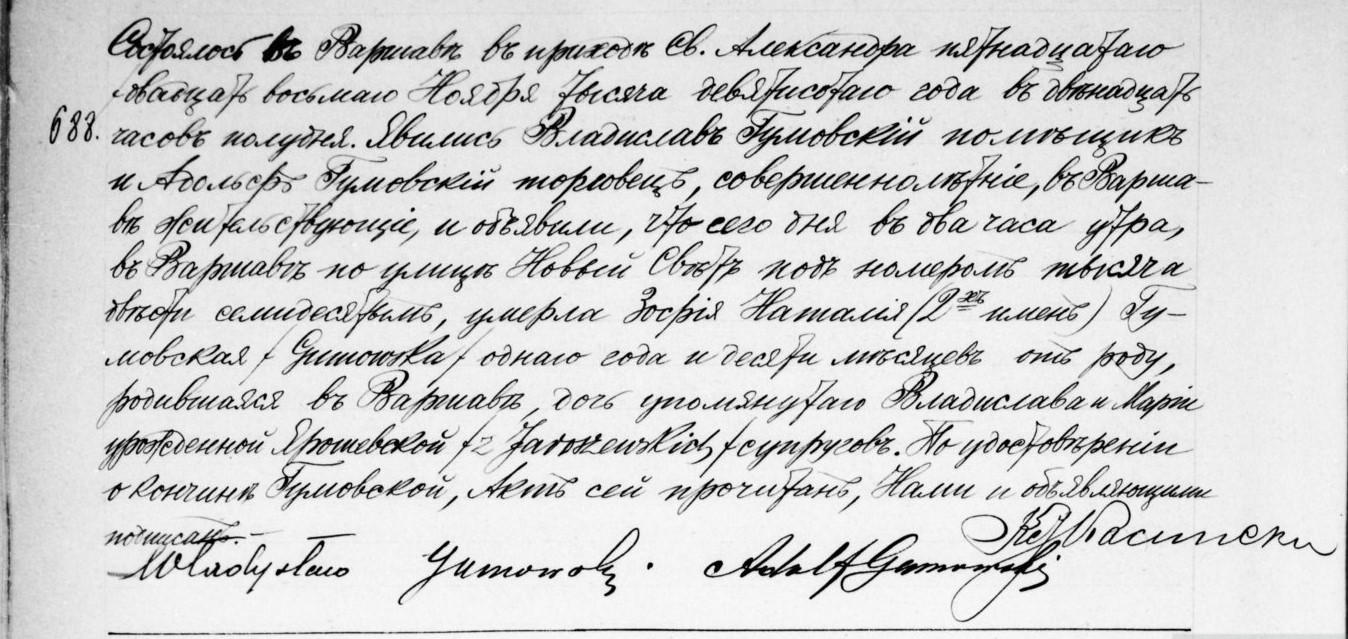 Состоялось въ Варшавѣ въ приходѣ Св. Александра пятнадцатаго
двадцать восьмаго Ноября тысяча девятисотаго года въ двѣнадцать
688. часовъ полудня. Явились Владиславъ Гумовскій помѣщикъ
и Адольфъ Гумовскій торговецъ, совершеннолѣтніе, въ Варша-
вѣ жительствующіе, и объявили, что сего дня въ два часа утра,
въ Варшавѣ по улицѣ Новый Свѣтъ подъ номеромъ тысяча
двѣсти семидесятымъ, умерла Зофія Наталія (2хъ именъ) Гу-
мовская /Gumowska/ однаго года и десяти мѣсяцевъ отъ роду,
родившаяся въ Варшавѣ, дочь упомянутаго Владислава и Маріи
урожденной Ярошевской /z Jaroszewskich/ супруговъ. По удостовѣреніи
о кончинѣ Гумовской, Актъ сей прочитанъ, Нами и объявляющими
подписанъ.-
Władysław Gumowski. Adolf Gumowski